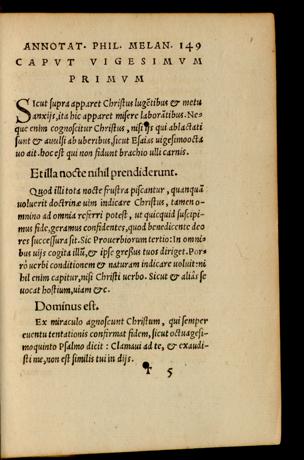 ANNOTAT. PHIL. MELAN. 149
CAPVT VIGESIMVM
PRIMVM
SIcut supra apparet Christus lugẽtibus & metu
anxijs, ita hic apparet misere laborãtibus. Ne-
que enim cognoscitur Christus, nisi ijs qui ablactati
sunt & auulsi ab uberibus, sicut Esaias uigesimoocta
uo ait. hoc est qui non fidunt brachio ulli carnis.
Et illa nocte nihil prendiderunt.
Quod illi tota nocte frustra piscantur, quanquã
voluerit doctrinæ uim indicare Christus, tamen o-
mnino ad omnia referri potest, ut quicquid suscipi-
mus fide, geramus confidentes, quod benedicente deo
res successura sit. Sic Prouerbiorum tertio: In omni-
bus uijs cogita illũ, & ipse greßus tuos diriget. Por-
rò verbi conditionem & naturam indicare voluit: ni-
hil enim capitur, nisi Christi verbo. Sicut & aliâs se
vocat hostium, uiam &c.
Dominus est.
Ex miraculo agnoscunt Christum, qui semper
euentu tentationis confirmat fidem, sicut octuagesi-
moquinto Psalmo dicit: Clamaui ad te, & exaudi-
sti me, non est similis tui in dijs.
5